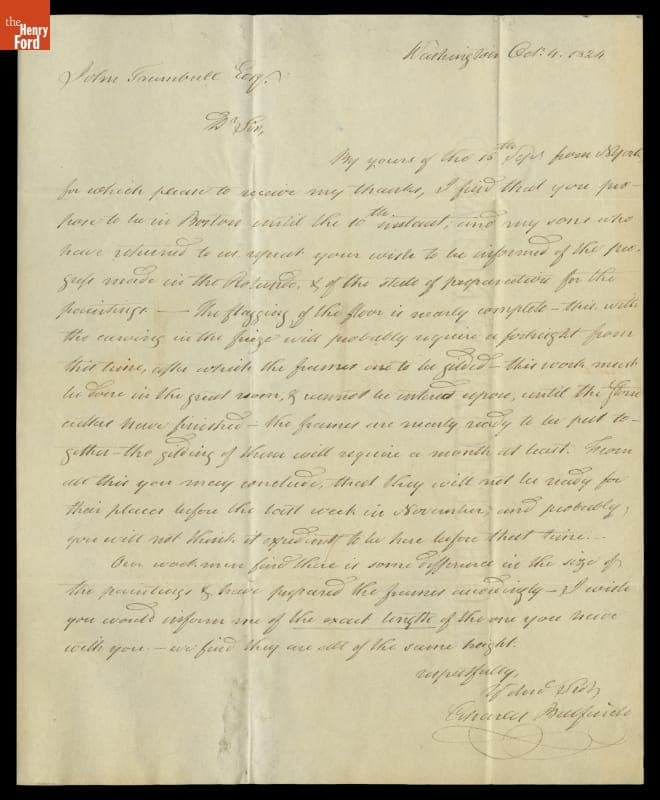 the
Henry
Ford
Washington Oct. 4. 1824
John Trumbull Esqr.
Dr Sir,
By yours of the 16th Sepr from NYork
for which please to receive my thanks, I find that you pro-
pose to be in Boston until the 10th instant, and my sons who
have returned to us repeat your wish to be informed of the pro-
gress made in the Rotunda, & of the state of preparation for the
paintings — — The flagging of the floor is nearly complete – this with
the carving in the frieze will probably require a fortnight from
this time, after which the frames are to be gilded – this work must
be done in the great room, & cannot be entered upon, until the stone
cutters have finished – the frames are nearly ready to be put to-
gether – the gilding of them will require a month at least. From
all this you may conclude, that they will not be ready for
their places before the last week in November, and probably,
you will not think it expedient to be here before that time. –
Our workmen find there is some difference in the size of
the paintings & have prepared the frames accordingly – & I wish
you would inform me of the exact length of the one you have
with you. – we find they are all of the same height.
respectfully,
Yr obed Servt
Charles Bulfinch